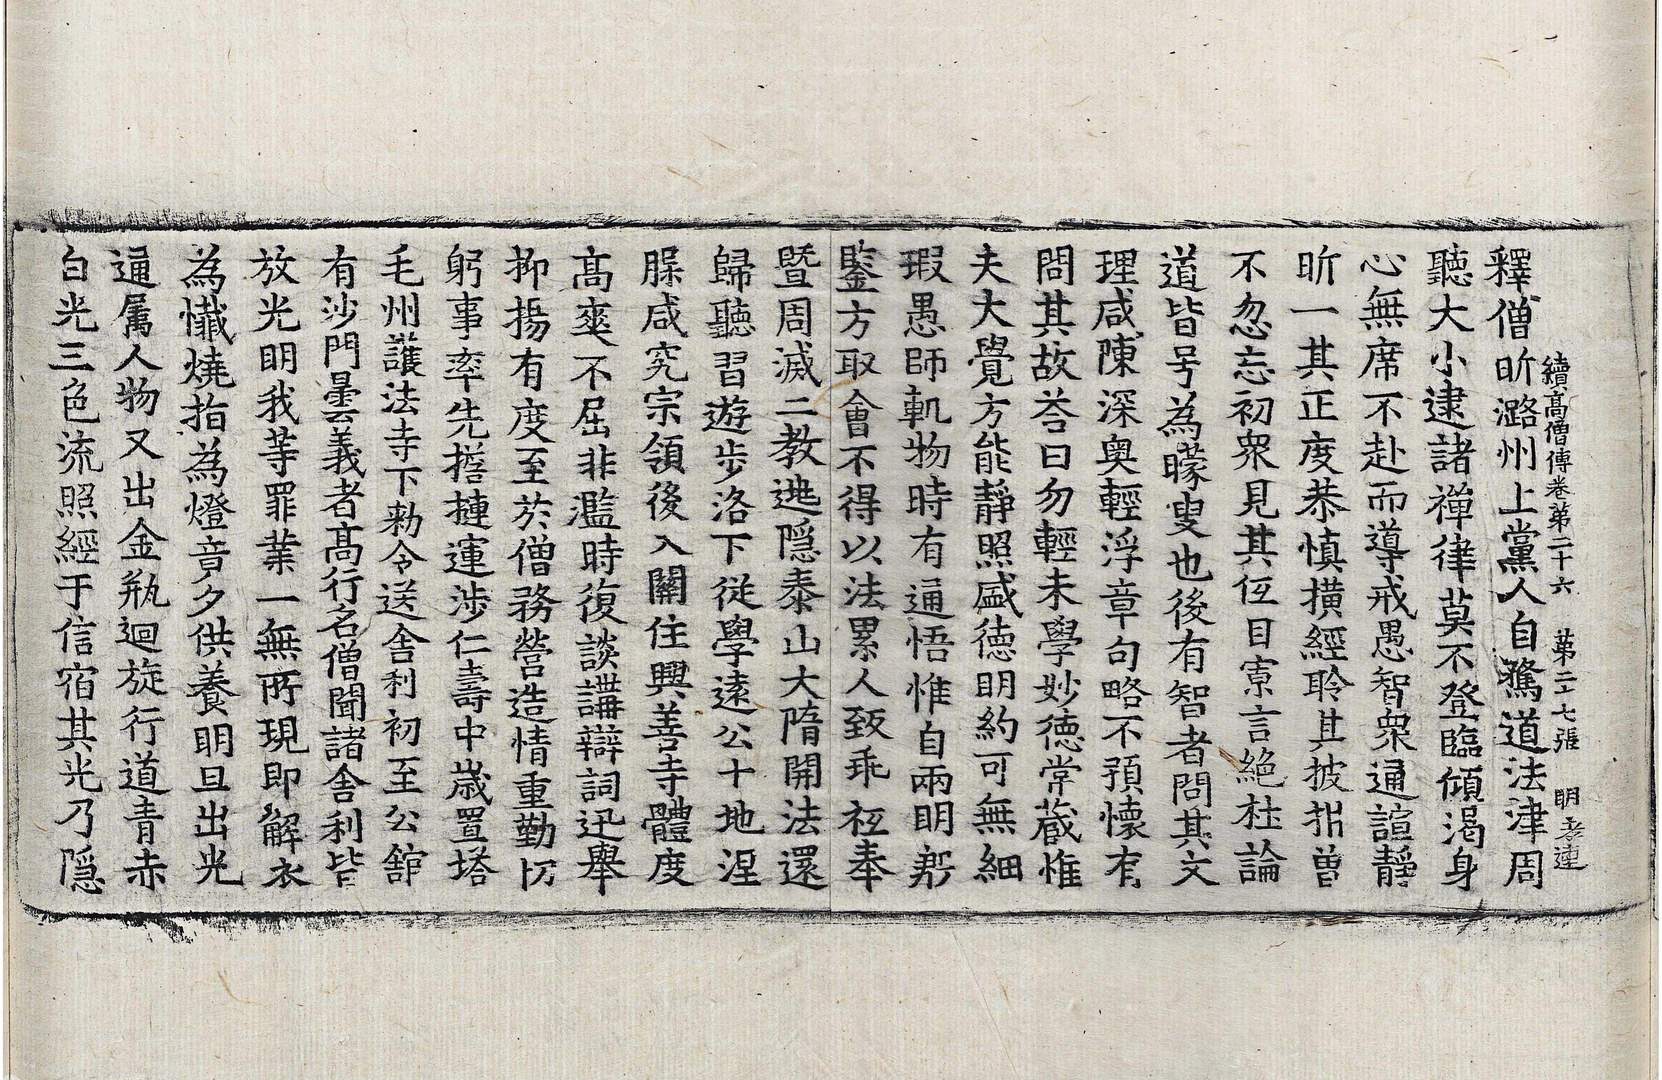 續高僧傳卷第二十六 第二十七張 明 孝連
釋僧昕潞州上黨人自騖道法津周
聽大小逮諸禪律莫不登臨傾渴身
心無席不赴而導戒愚智衆通諠靜
昕一其正度恭慎撗經聆其披析曽
不忽忘初衆見其恆目寡言絶杜論
道皆号為矇叟也後有智者問其文
理咸陳深奥輕浮章句略不預懷有
問其故荅曰勿輕未學妙徳常蔵惟
夫大覺方能靜照盛徳明約可無細
瑕愚師軌物時有通悟惟自兩明齌
鍳方取會不得以法累人致乖祗奉
暨周滅二教逃隠泰山大隋開法還
歸聽習遊步洛下從學遠公十地涅
槃咸究宗領後入關住興善寺體度
髙爽不屈非濫時復談講辯詞迅舉
抑揚有度至於僧務營造情重勤切
躬事率先搭揵運涉仁壽中歳置塔
毛州護法寺下勑令送舍利初至公舘
有沙門曇義者髙行名僧聞諸舎利皆
放光明我等罪業一無所現即解衣
為懺燒指為燈竟夕供養明旦出光
通属人物又出金瓶迴旋行道青赤
白光三色流照經于信宿其光乃隠